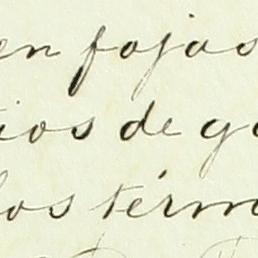 en fojas
ios de ga
los térm